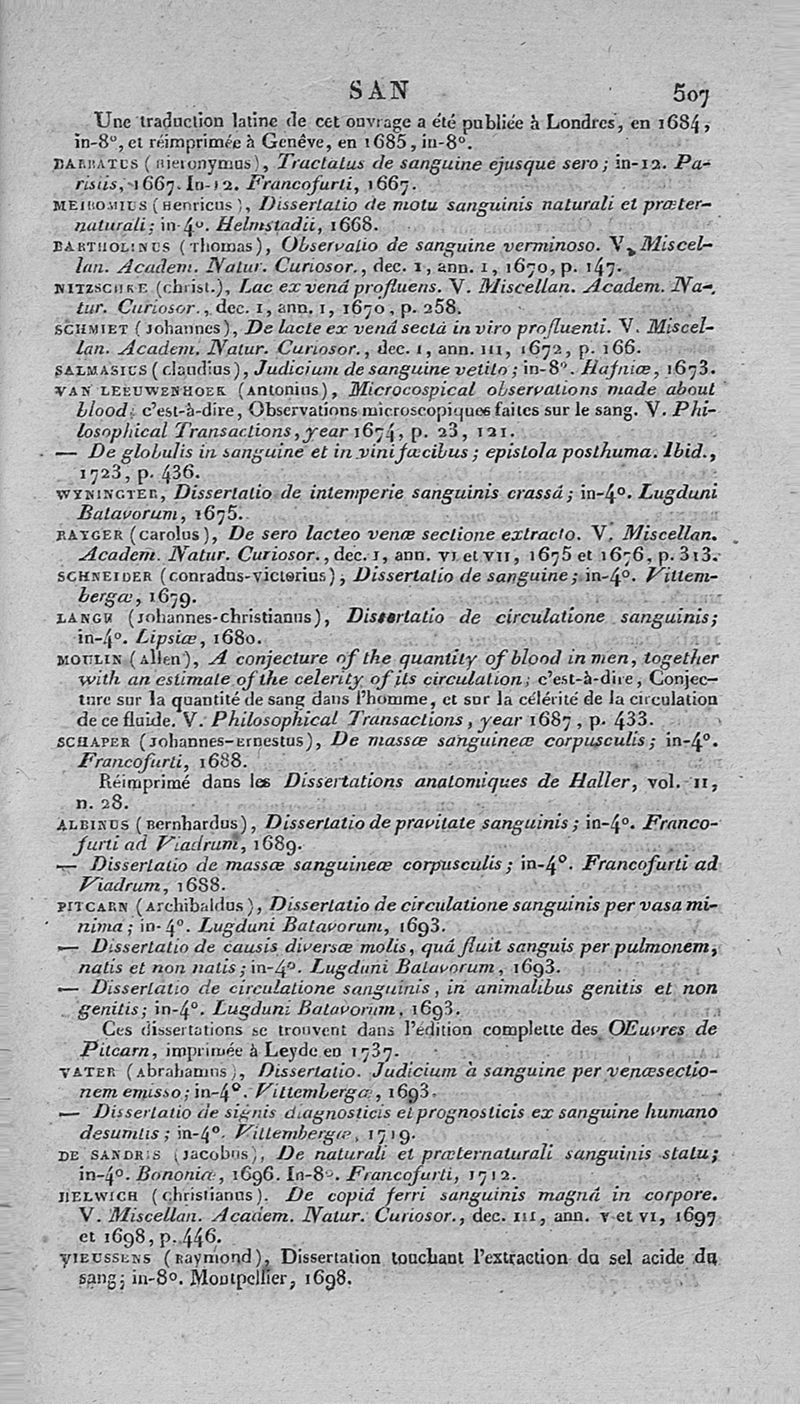 SAN 507
Une traduction latine de cet ouvrage a été publiée à Londres, en 1684,
in-8°, et réimprimée à Genêve, en 1685, in-8°.
BARBATUS (Hieronymus), Tractatus de sanguine ejusque sero; in-12. Pa-
risiis, 1667. In-12. Francofurti, 1667.
MEIBOMIUS (Henricus), Dissertatio de motu sanguinis naturali et præter-
naturali; in-4°. Helmstadii, 1668.
BARTHOLINUS (Thomas), Observatio de sanguine verminoso. V. Miscel-
lan. Academ. Natur. Curiosor., dec. 1, ann. 1, 1670, p. 147.
NITZSCHKE (christ.), Lac ex venâ profluens. V. Miscellan. Academ. Na-
tur. Curiosor., dec. 1, ann. 1, 1670, p. 258.
SCHMIET (Johannes), De lacte ex venâ sectâ in viro profluenti. V. Miscel-
lan. Academ. Natur. Curiosor., dec. 1, ann. III, 1672, p. 166.
SALMASIUS (claudius), Judicium de sanguine vetito; in-8°. Hafniæ, 1673.
VAN LEEUWENHOEK (Antonius), Microcospical observations made about
blood; c'est-à-dire, Observations microscopiques faites sur le sang. V. Phi-
losophical Transactions, year 1674, p. 23, 121.
— De globulis in sanguine et in vini fæcibus; epistola posthuma. Ibid.,
1723, p. 436.
WYNINGTER, Dissertatio de intemperie sanguinis crassâ; in-4°. Lugduni
Batavorum, 1675.
RAYGER (carolus), De sero lacteo venæ sectione extracto. V. Miscellan.
Academ. Natur. Curiosor., dec. 1, ann. VI et VII, 1675 et 1676, p. 313.
SCHNEIDER (conradus-victorius), Dissertatio de sanguine; in-4°. Vittem-
bergæ, 1679.
LANGE (Johannes-christianus), Dissertatio de circulatione sanguinis;
in-4°. Lipsiæ, 1680.
MOULIN (Allen), A conjecture of the quantity of blood in men, together
with an estimate of the celerity of its circulation; c'est-à-dire, Conjec-
ture sur la quantité de sang dans l'homme, et sur la célérité de la circulation
de ce fluide. V. Philosophical Transactions, year 1687, p. 433.
SCHAPER (Johannes-Ernestus), De massæ sanguineæ corpusculis; in-4°.
Francofurti, 1688.
Réimprimé dans les Dissertations anatomiques de Haller, vol. II,
n. 28.
ALBINUS (Bernhardus), Dissertatio de pravitate sanguinis; in-4°. Franco-
furti ad Viadrum, 1689.
— Dissertatio de massæ sanguineæ corpusculis; in-4°. Francofurti ad
Viadrum, 1688.
PITCARN (Archibaldus), Dissertatio de circulatione sanguinis per vasa mi-
nima; in-4°. Lugduni Batavorum, 1693.
— Dissertatio de causis diversæ molis, quâ fluit sanguis per pulmonem,
natis et non natis; in-4°. Lugduni Batavorum, 1693.
— Dissertatio de circulatione sanguinis, in animalibus genitis et non
genitis; in-4°. Lugduni Batavorum, 1693.
Ces dissertations se trouvent dans l'édition complette des OEuvres de
Pitcarn, imprimée à Leyde en 1737.
VATER (Abrahamus), Dissertatio. Judicium à sanguine per venæsectio-
nem emisso; in-4°. Vittembergæ, 1693.
— Dissertatio de signis diagnosticis et prognosticis ex sanguine humano
desumtis; in-4°. Vittembergiæ, 1719.
DE SANDRIS (Jacobus), De naturali et præternaturali sanguinis statu;
in-4°. Bononiæ, 1696. In-8°. Francofurti, 1712.
HELWICH (christianus). De copiâ ferri sanguinis magnâ in corpore.
V. Miscellan. Academ. Natur. Curiosor., dec. III, ann. V et VI, 1697
et 1698, p. 446.
VIEUSSENS (Raymond), Dissertation touchant l'extraction du sel acide du
sang; in-8°. Montpellier, 1698.